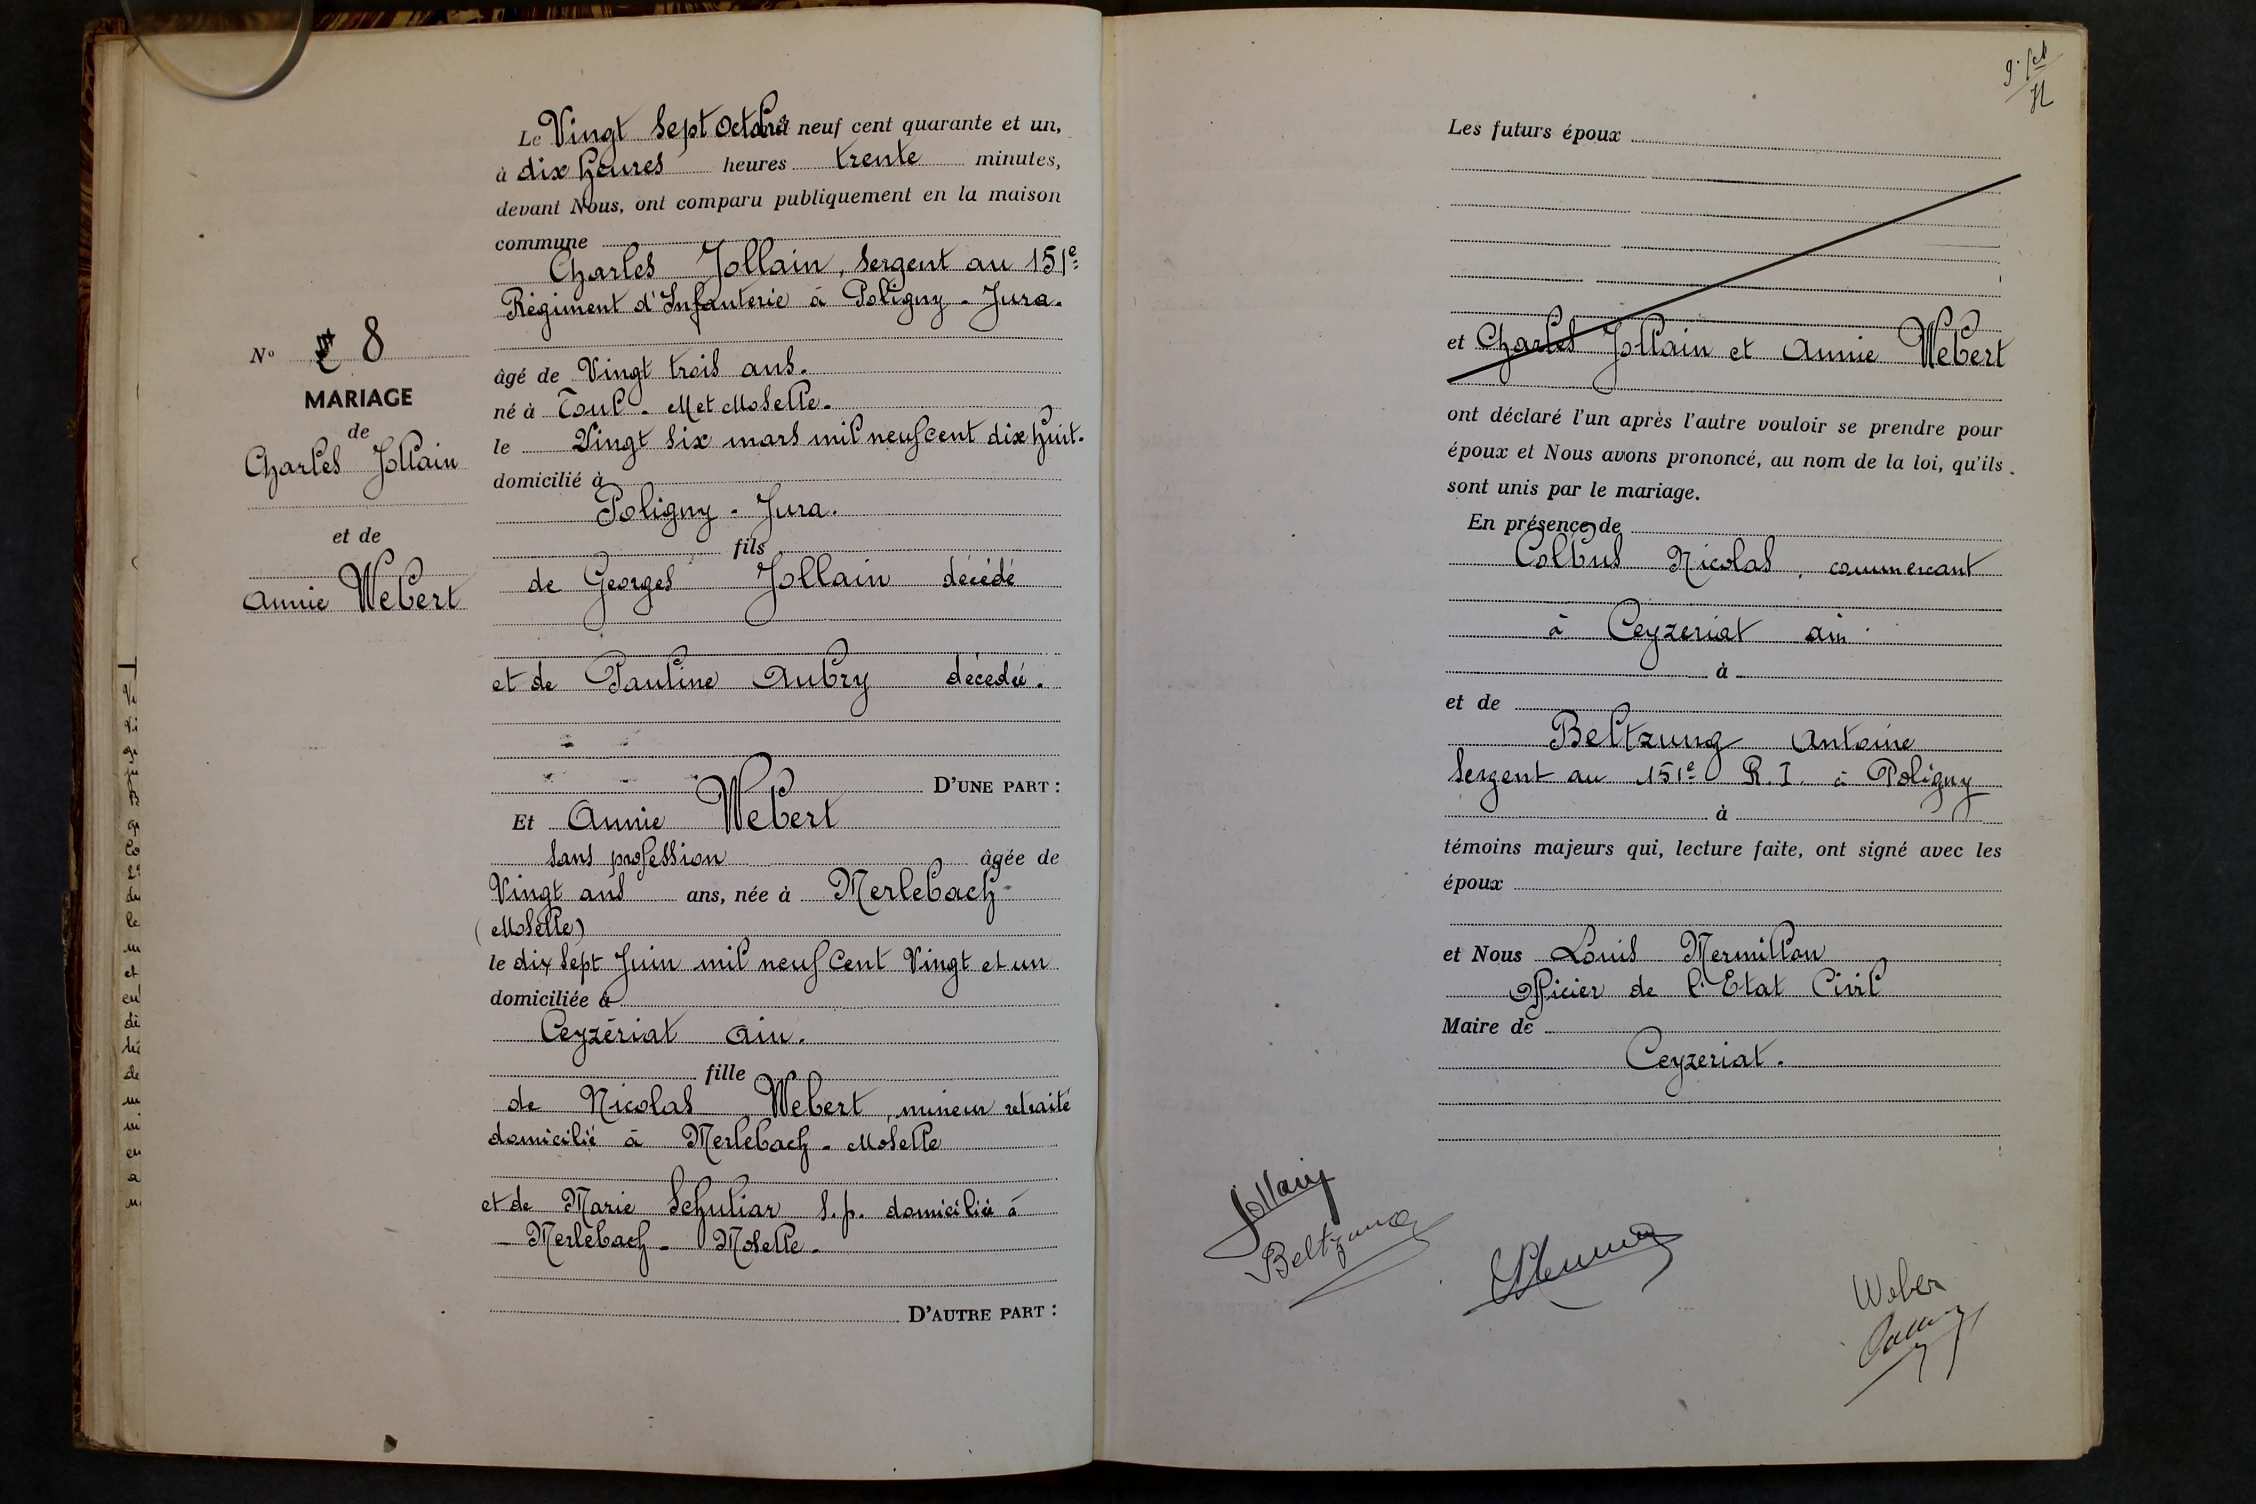 Le Vingt Sept Octobre mil neuf cent quarante et un,
à dix heures heures trente minutes,
devant Nous, ont comparu publiquement en la maison
commune
Charles Jollain, Sergent au 151e
Régiment d'Infanterie à Poligny - Jura.
âgé de Vingt trois ans.
né à Toul - M et Moselle.
le Vingt six mars mil neuf cent dix huit.
domicilié à
Poligny - Jura.
fils
de Georges Jollain décédé
et de Pauline Aubry décédée.
D'UNE PART :
Et Annie Webert
Sans profession âgée de
Vingt ans ans, née à Merlebach
(Moselle)
le dix sept Juin mil neuf Cent Vingt et un
domiciliée à
Ceyzériat Ain.
fille
de Nicolas Webert, mineur retraité
domicilié à Merlebach - Moselle
et de Marie Schuliar S.p. domiciliée à
- Merlebach - Moselle -
D'AUTRE PART :
No 8
MARIAGE
de
Charles Jollain
et de
Annie Webert
Les futurs époux
et Charles Jollain et Annie Webert
ont déclaré l'un après l'autre vouloir se prendre pour
époux et Nous avons prononcé, au nom de la loi, qu'ils
sont unis par le mariage.
En présence de
Colbus Nicolas, commercant
à Ceyzeriat ain
à
et de
Beltzung Antoine
Sergent au 151e R.I. à Poligny
à
témoins majeurs qui, lecture faite, ont signé avec les
époux
et Nous Louis Mermillon
Officier de l'Etat Civil
Maire de
Ceyzeriat.
Jollain
Beltzung
Weber